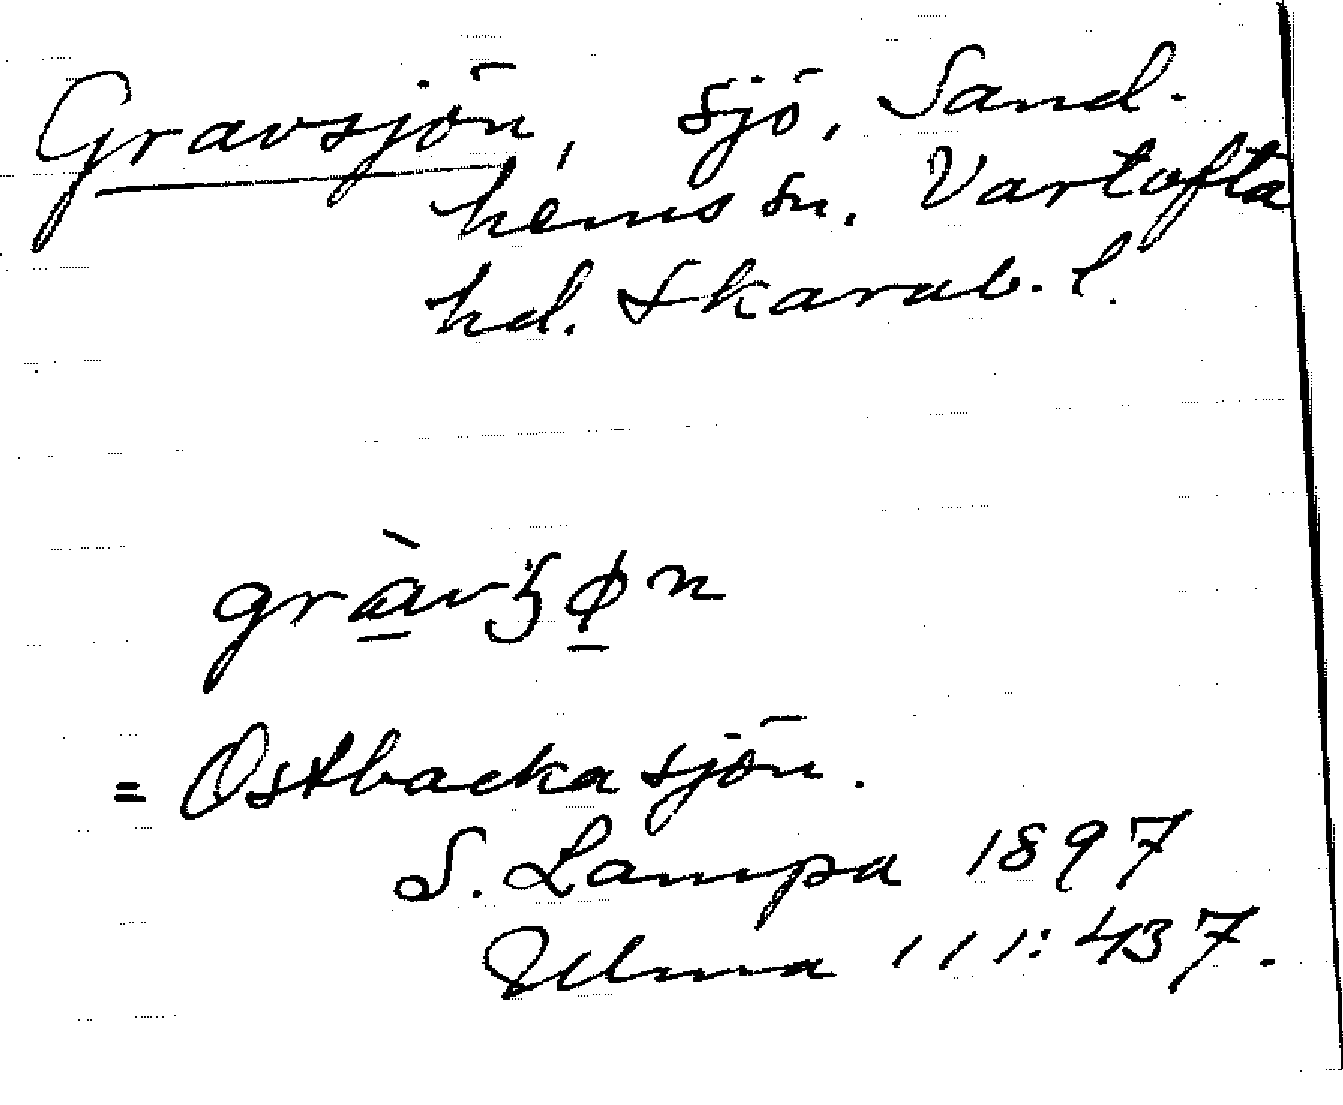 Gravsjön, sjö, Sand-
hems sn. Vartofta
hd. Skarab. l.
gràvʒøn
= Ostbackasjön.
S. Lampa 1897
Ulma 111:437.